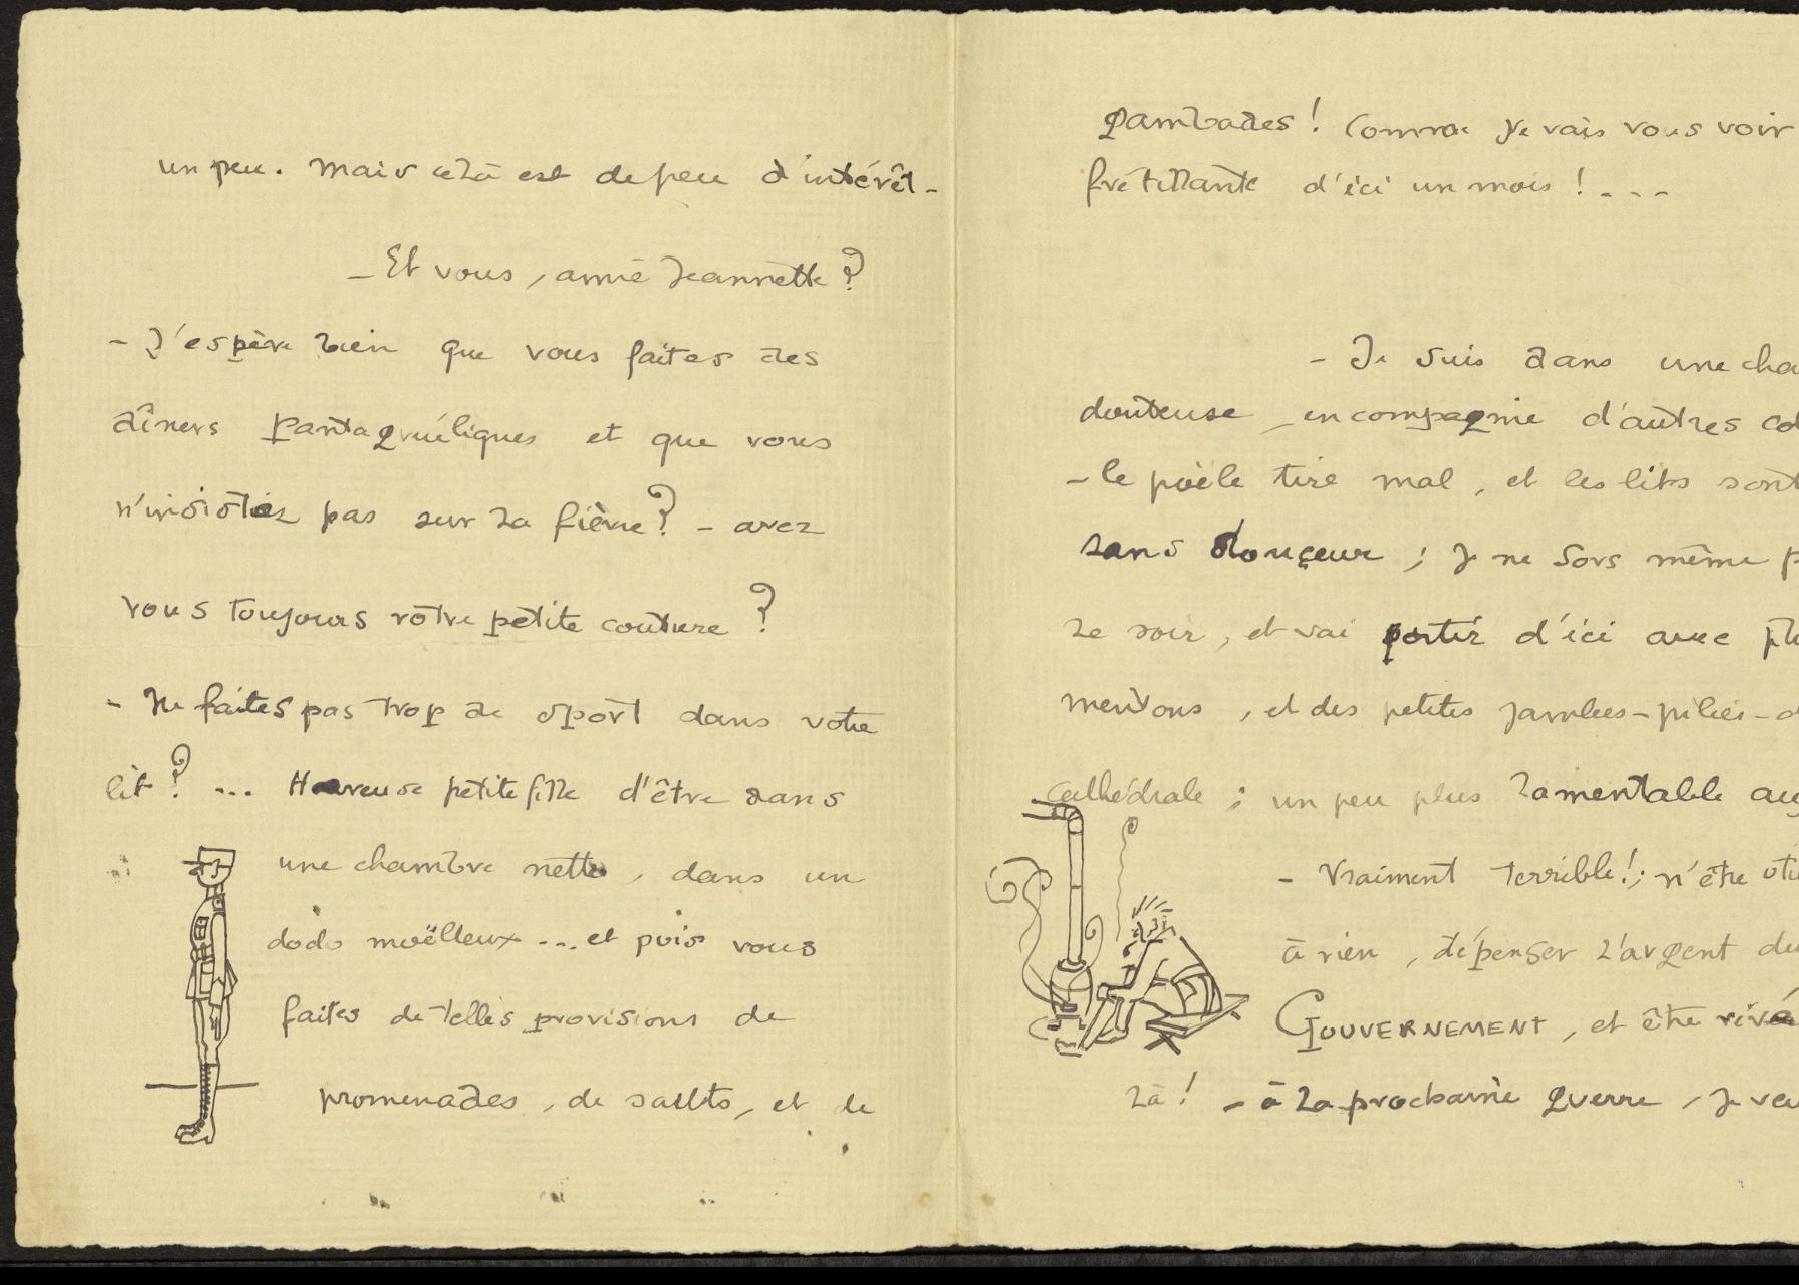 un peu. Mais celà est de peu d'intérêt -
- Et vous, amie Jeannette ?
- J'espère bien que vous faites des
dîners pantagruéliques et que vous
n'insistez pas sur la fièvre ? - avez
vous toujours votre petite couture ?
- Ne faites pas trop de sport dans votre
lit ? ... Heureuse petite fille d'être dans
une chambre nette, dans un
dodo moëlleux ... et puis vous
faites de telles provisions de
promenades, de sauts, et de
gambades ! Comme je vais vous voir
frétillante d'ici un mois ! ...
- Je suis dans une cha
douteuse, en compagnie d'autres co
- le poêle tire mal, et les lits sont
sans douceur ; je ne sors même p
le soir, et vai partir d'ici avec plu
mentons, et des petites jambes-pilier-d
cathédrale ; un peu plus lamentable au
- Vraiment terrible ! ; n'être uti
à rien, dépenser l'argent du
GOUVERNEMENT, et être rivé
là ! - à la prochaine guerre, je veu